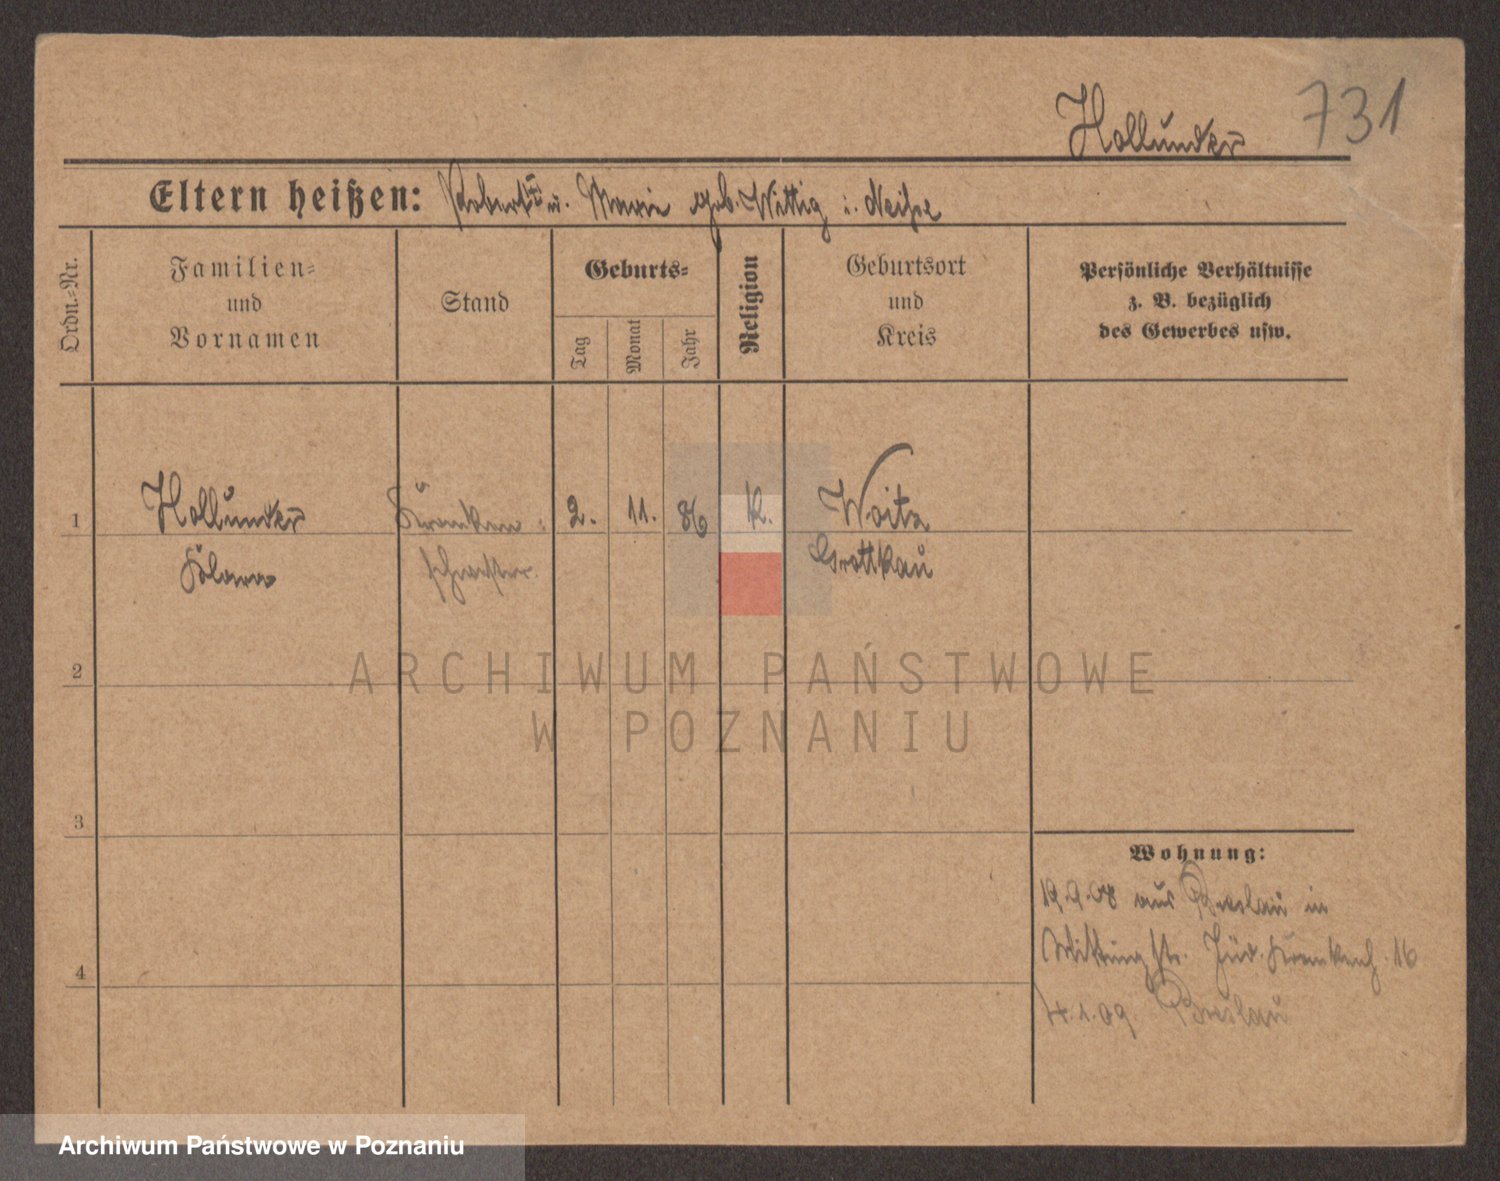 Hollunder 731
Eltern heißen: Robert † u. Marie geb. Wittig i. Neiße
Ordn.-Nr.
Familien-
und
Vornamen
Stand
Geburts-
Tag
Monat
Jahr
Religion
Geburtsort
und
Kreis
Persönliche Verhältnisse
z. B. bezüglich
des Gewerbes usw.
1 Hollunder Kranken- 2. 11. 86 K. Woitz
Klara schwester. Grottkau
2
ARCHIWUM PAŃSTWOWE
W POZNANIU
3
Wohnung:
19.9.08 aus Breslau in
str. Jüd. Krankenh. 16
4
4.1.09. Breslau
Archiwum Państwowe w Poznaniu